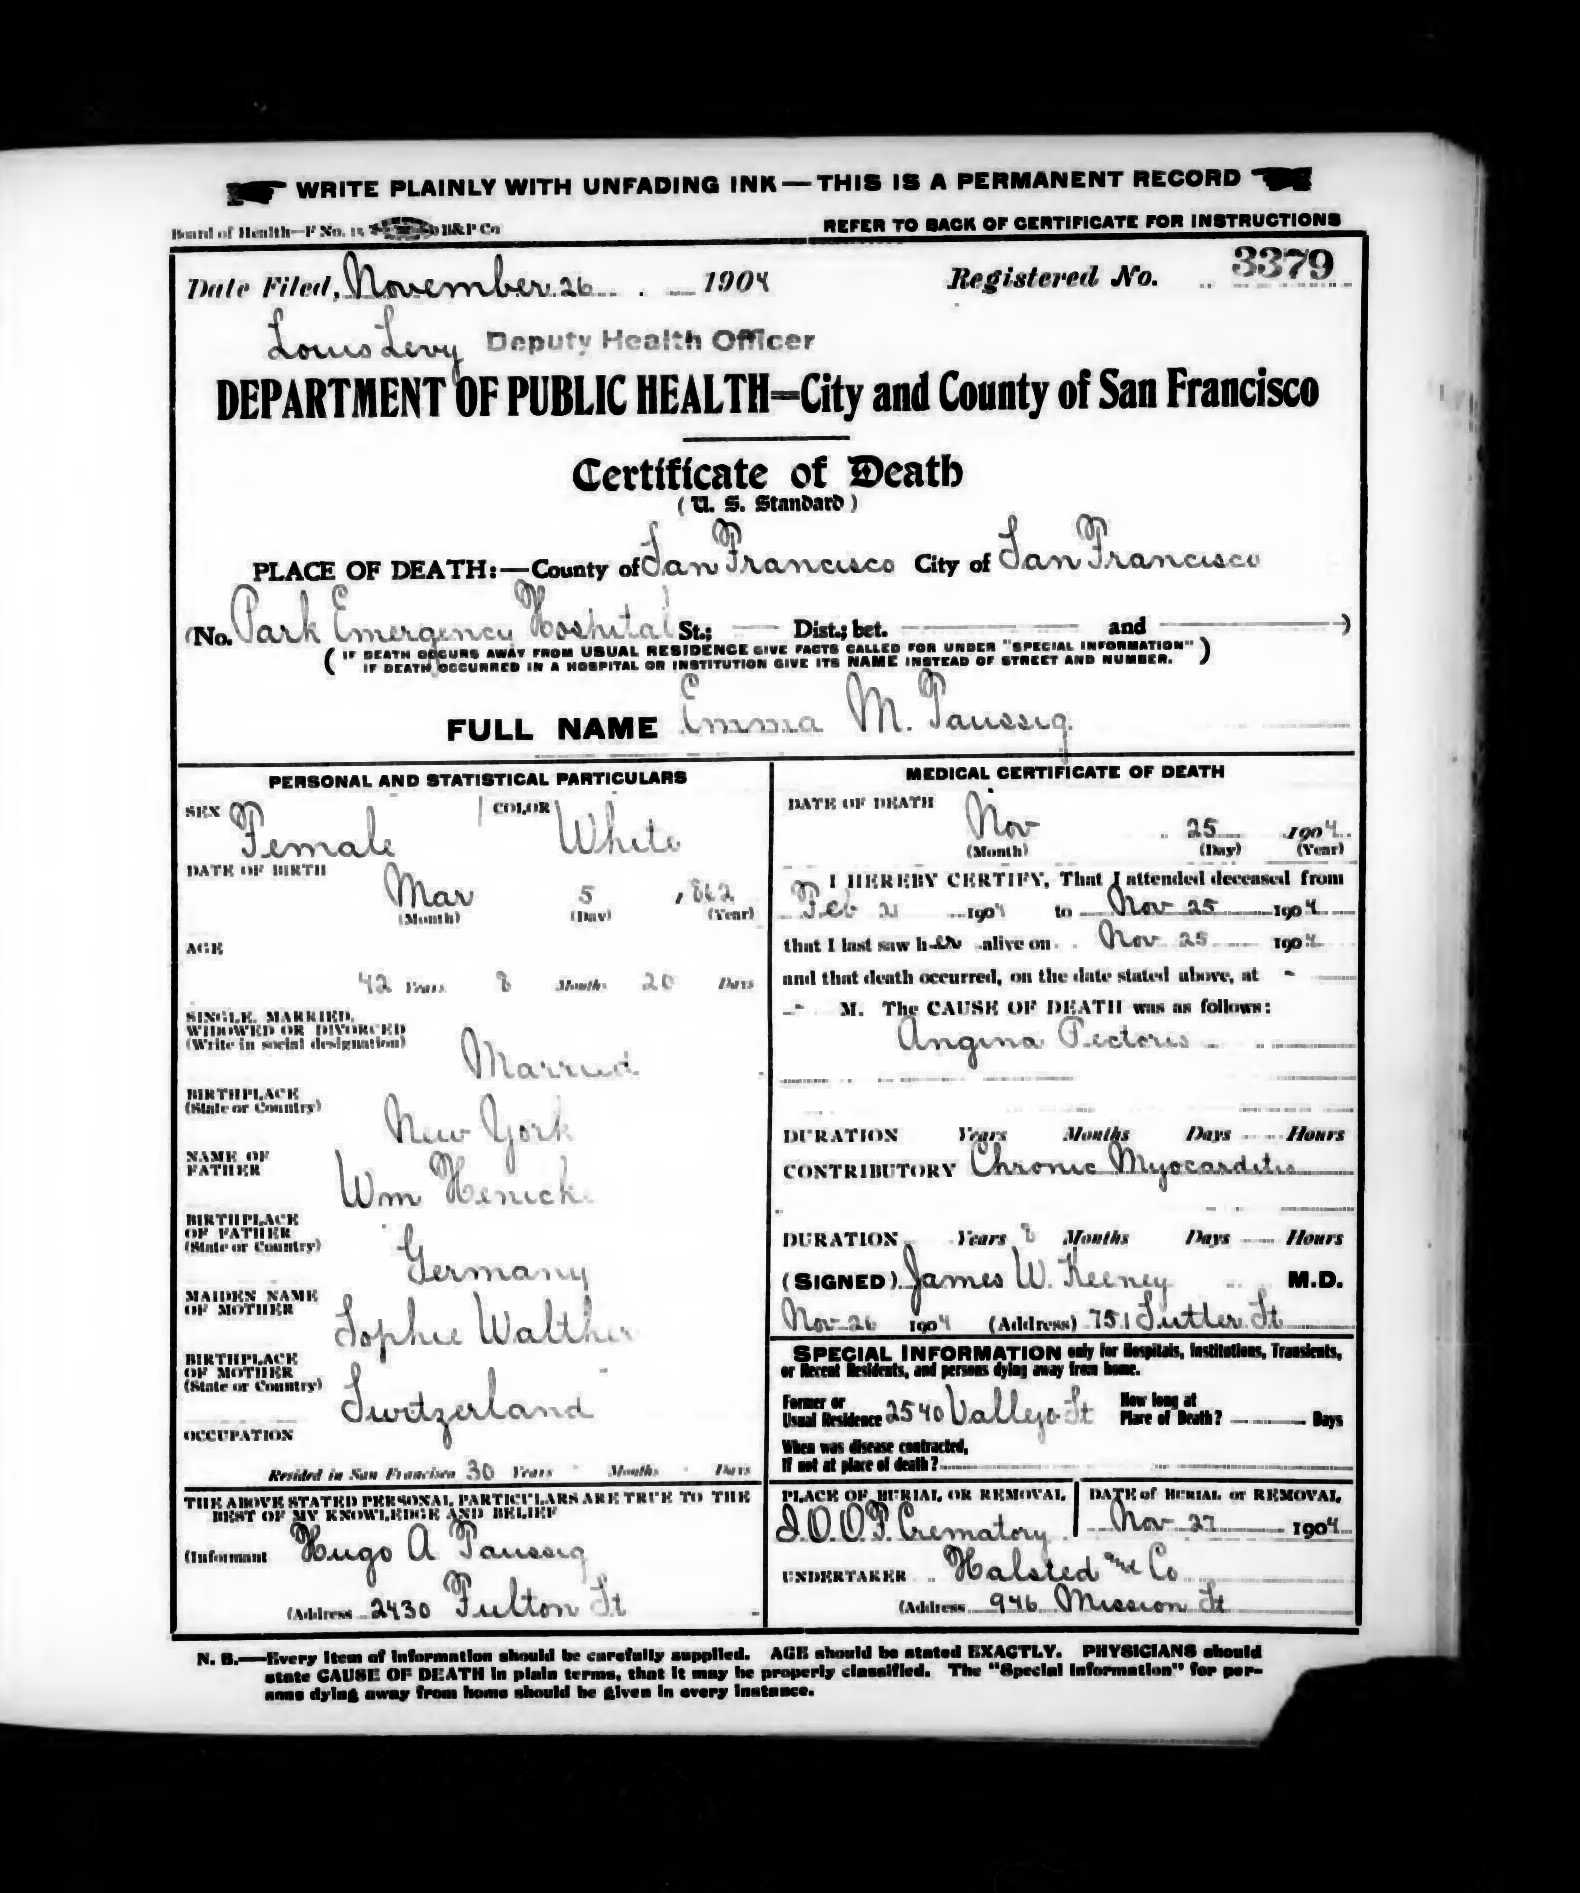 WRITE PLAINLY WITH UNFADING INK—THIS IS A PERMANENT RECORD
Board of Health—F No. 15 B&P Co
REFER TO BACK OF CERTIFICATE FOR INSTRUCTIONS
Date Filed, November 26 1904 Registered No. 3379
Louis Levy Deputy Health Officer
DEPARTMENT OF PUBLIC HEALTH—City and County of San Francisco
Certificate of Death
(U. S. Standard)
PLACE OF DEATH:—County of San Francisco City of San Francisco
(No. Park Emergency Hospital St.; Dist.; bet. and )
(IF DEATH OCCURS AWAY FROM USUAL RESIDENCE GIVE FACTS CALLED FOR UNDER "SPECIAL INFORMATION"
IF DEATH OCCURRED IN A HOSPITAL OR INSTITUTION GIVE ITS NAME INSTEAD OF STREET AND NUMBER.)
FULL NAME Emma M. Taussig
PERSONAL AND STATISTICAL PARTICULARS
SEX Female COLOR White
DATE OF BIRTH
Mar 5 1862
(Month) (Day) (Year)
AGE
42 Years 8 Months 20 Days
SINGLE, MARRIED,
WIDOWED OR DIVORCED
(Write in social designation) Married
BIRTHPLACE
(State or Country) New York
NAME OF
FATHER Wm Henicke
BIRTHPLACE
OF FATHER
(State or Country) Germany
MAIDEN NAME
OF MOTHER Sophie Walther
BIRTHPLACE
OF MOTHER
(State or Country) Switzerland
OCCUPATION
Resided in San Francisco 30 Years Months Days
THE ABOVE STATED PERSONAL PARTICULARS ARE TRUE TO THE
BEST OF MY KNOWLEDGE AND BELIEF
(Informant Hugo A Taussig
(Address 2430 Fulton St
MEDICAL CERTIFICATE OF DEATH
DATE OF DEATH
Nov 25 1904
(Month) (Day) (Year)
I HEREBY CERTIFY, That I attended deceased from
Feb 21 1904 to Nov 25 1904
that I last saw her alive on Nov 25 1904
and that death occurred, on the date stated above, at -
- M. The CAUSE OF DEATH was as follows:
Angina Pectoris
DURATION Years Months Days Hours
CONTRIBUTORY Chronic Myocarditis
DURATION Years 8 Months Days Hours
(SIGNED) James W. Keeney M.D.
Nov 26 1904 (Address) 751 Sutter St
SPECIAL INFORMATION only for Hospitals, Institutions, Transients,
or Recent Residents, and persons dying away from home.
Former or
Usual Residence 2540 Vallejo St
How long at
Place of Death? Days
When was disease contracted,
If not at place of death?
PLACE OF BURIAL OR REMOVAL
I.O.O.F. Crematory
DATE of BURIAL or REMOVAL
Nov 27 1904
UNDERTAKER Halsted and Co
(Address 946 Mission St
N. B.—Every item of information should be carefully supplied. AGE should be stated EXACTLY. PHYSICIANS should
state CAUSE OF DEATH in plain terms, that it may be properly classified. The "Special Information" for per-
sons dying away from home should be given in every instance.